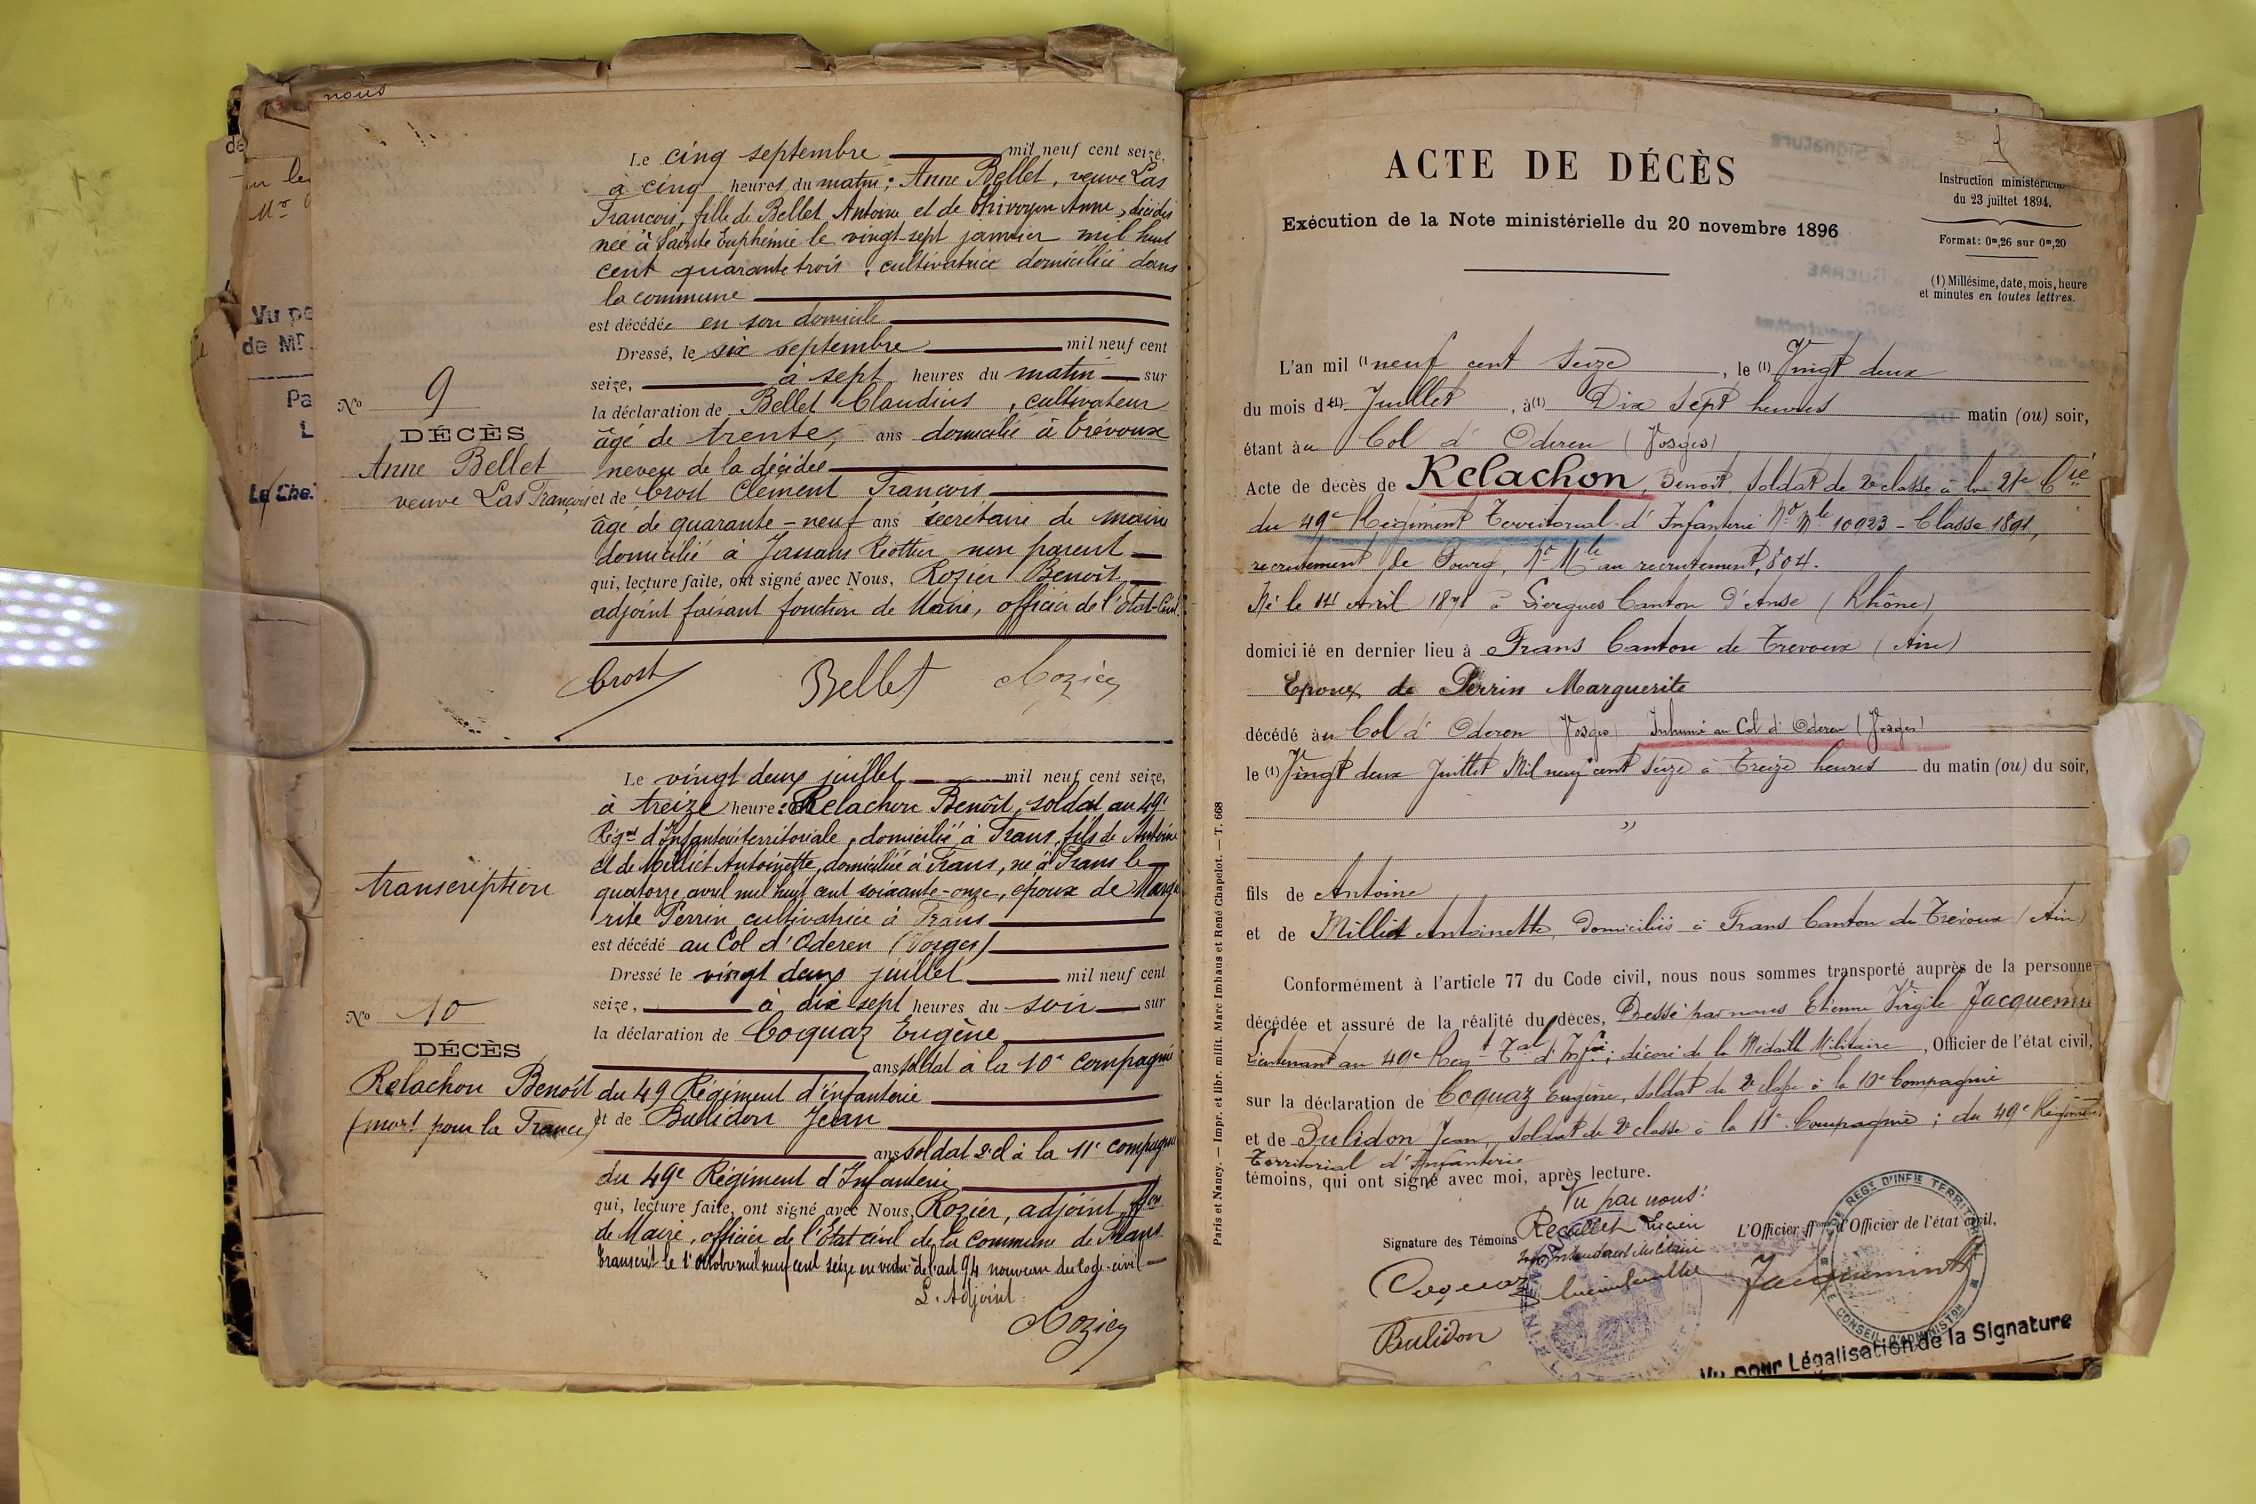 nous
de
Mr
Vu pe
de Mr.
Pa
L
Le Che
Le cinq septembre mil neuf cent seize,
à cinq heures du matin; Anne Bellet, veuve Las
François, fille de Bellet Antoine et de Anne, décédés
née à Sainte Euphémie le vingt-sept janvier mil huit
cent quarante trois, cultivatrice domiciliée dans
la commune
est décédée en son domicile
Dressé, le six septembre mil neuf cent
seize, à sept heures du matin sur
No 9
la déclaration de Bellet Claudius, cultivateur
DÉCÈS
âgé de trente, ans domicilié à Trévoux
Anne Bellet
neveu de la décédée
veuve Las François
et de Crost Clément François
âgé de quarante-neuf ans secrétaire de mairie
domicilié à Jassans Riottier non parent
qui, lecture faite, ont signé avec Nous, Rozier Benoît
adjoint faisant fonction de Maire, officier de l'état-Civil.
Crost Bellet Rozier
Le vingt deux juillet mil neuf cent seize,
à treize heures Relachon Benoît, soldat au 49e
Régnt d'Infanterie territoriale, domicilié à Frans, fils de Antoine
et de Milliet Antoinette, domiciliés à Frans, né à Frans le
transcription
quatorze avril mil huit cent soixante-onze, époux de Margue
rite Perrin cultivatrice à Frans
est décédé au Col d'Oderen (Vosges)
Dressé le vingt deux juillet mil neuf cent
No 10
seize, à dix sept heures du soir sur
la déclaration de Cocquaz Eugène
DÉCÈS
ans soldat à la 10e compagnie
Relachon Benoît
du 49 Régiment d'infanterie
(mort pour la France)
et de Bulidon Jean
ans soldat 2e cl à la 11e compagnie
du 49e Régiment d'Infanterie
qui, lecture faite, ont signé avec Nous, Rozier, adjoint, ffon
de Maire, officier de l'Etat civil de la commune de Frans
Transcrit le 1er octobre mil neuf cent seize en vertu de l'art 94 nouveau du Code-civil
L'Adjoint
Rozier
ACTE DE DÉCÈS
Exécution de la Note ministérielle du 20 novembre 1896
Instruction ministérielle
du 23 juillet 1894.
Format: 0m,26 sur 0m,20
(1) Millésime, date, mois, heure
et minutes en toutes lettres.
L'an mil (1 neuf cent seize, le (1) Vingt deux
du mois de (1) Juillet, à (1) Dix sept heures matin (ou) soir,
étant au Col d'Oderen (Vosges)
Acte de décès de Relachon, Benoit, Soldat de 2e classe à la 21e Cie
du 49e Régiment Territorial d'Infanterie No Mle 10923 - Classe 1891,
recrutement de Bourg, No Mle au recrutement, 804.
Né le 14 Avril 1871 à Liergues Canton d'Anse (Rhône)
domicilié en dernier lieu à Frans Canton de Trévoux (Ain)
Epoux de Perrin Marguerite
décédé au Col d'Oderen (Vosges) Inhumé au Col d'Oderen (Vosges)
le (1) Vingt deux Juillet Mil neuf cent seize à Treize heures du matin (ou) du soir,
"
fils de Antoine
et de Milliet Antoinette, Domiciliés à Frans Canton de Trévoux (Ain)
Conformément à l'article 77 du Code civil, nous nous sommes transporté auprès de la personne
décédée et assuré de la réalité du décès, Dressé par nous Etienne Virgile Jacquemin
Lieutenant au 49e Regt Tal d'Infie, décoré de la Médaille Militaire, Officier de l'état civil,
sur la déclaration de Cocquaz Eugène, Soldat de 2e classe à la 10e Compagnie
et de Bulidon Jean, Soldat de 2e classe à la 11e Compagnie; du 49e Régiment
Territorial d'Infanterie
témoins, qui ont signé avec moi, après lecture.
Vu par nous:
Signature des Témoins
Lucien
Intendant Militaire
L'Officier ffons d'Officier de l'état civil,
Cocquaz
Jacquemin
Bulidon
REGt D'INFIE TERRITORIALE
LE CONSEIL D'ADMINISTON
Vu pour Légalisation de la Signature
Paris et Nancy. — Impr. et libr. milit. Marc Imhaus et René Chapelot. — T. 668